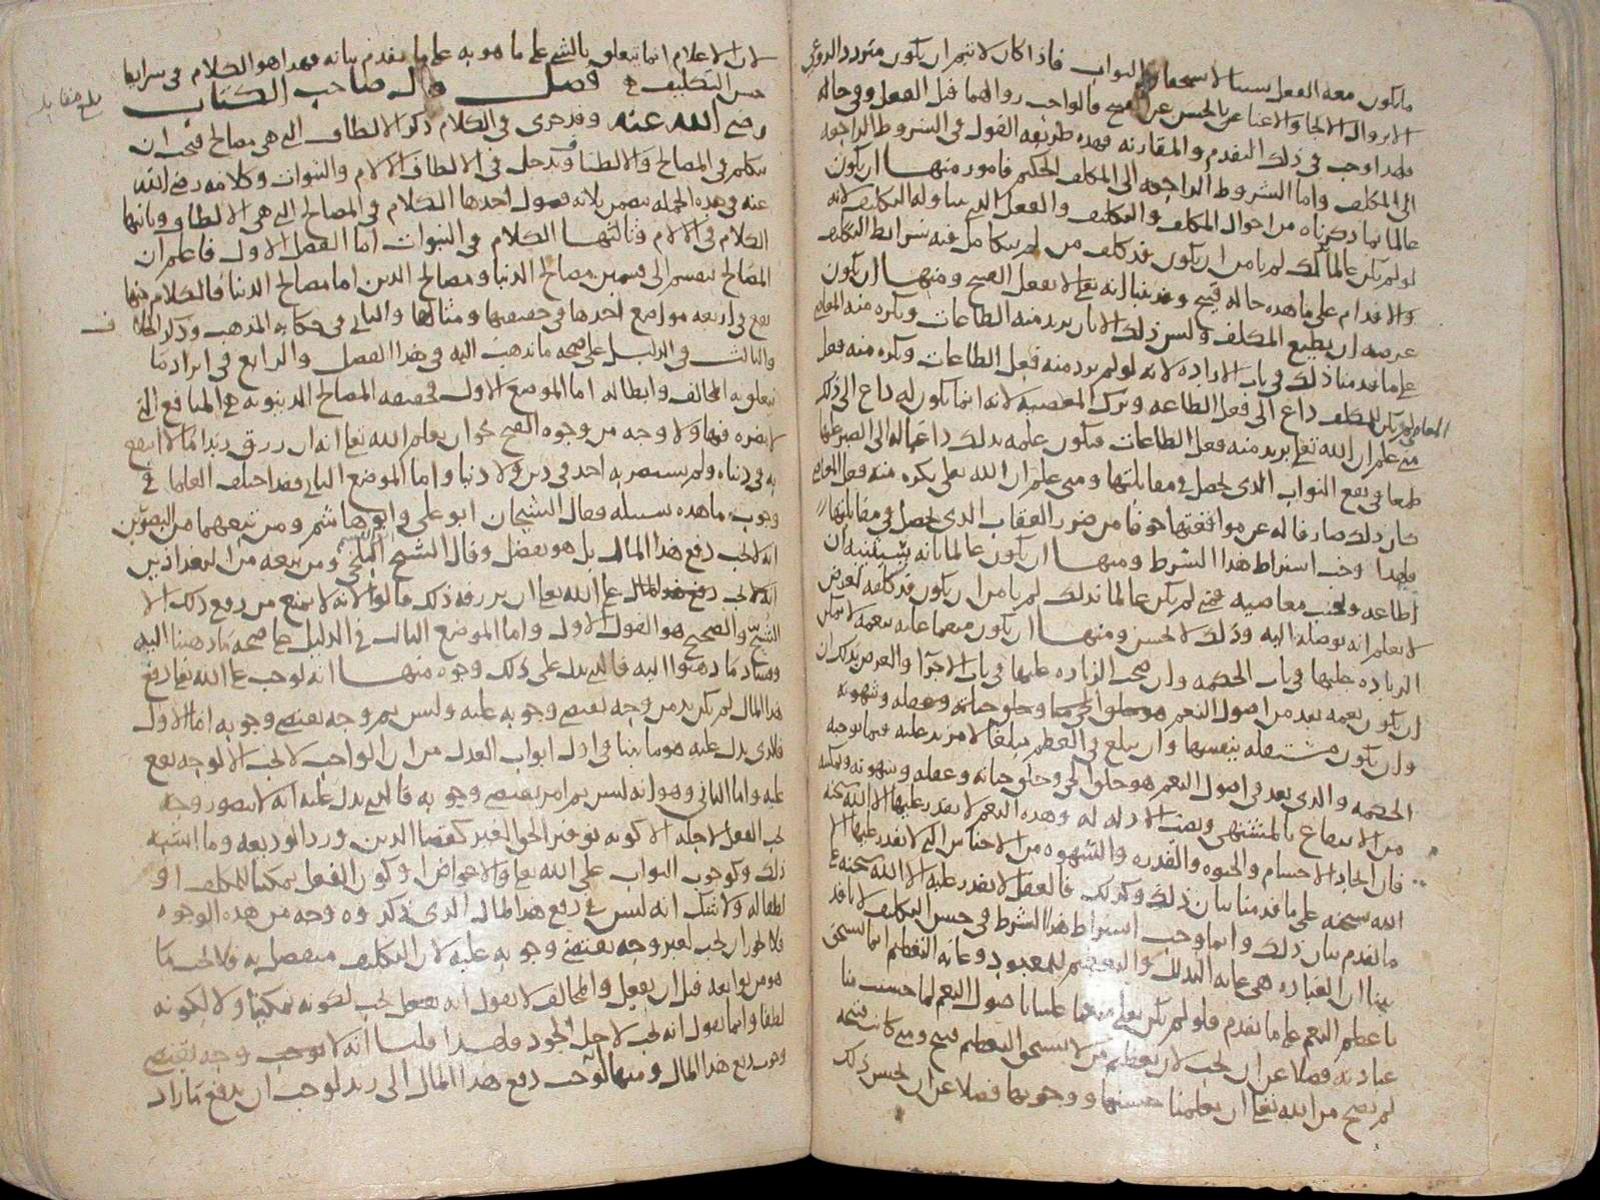 ما يكون معه الفعل سببا لاستحقاق الثواب فاذا كان لا يثمر ان يكون متردد الدواعي
الا بزوال الالجا والاغنا عن بالحسن عن القبيح فالواجب زوالهما قبل الفعل وفي حاله
فلهذا وجب في ذلك التقدم والمقارنه فهذه طريقه القول في الشروط الراجعه
الى المكلف واما الشروط الراجعه الى المكلف الحكيم فامور منها ان يكون
عالما بما ذكرناه من احوال المكلف والتكليف والفعل الذي يتناوله التكليف لانه
لو لم يكن عالما بذلك لم يامن ان يكون قد كلف من لم يتكامل فيه شرايط التكليف
والاقدام على ما هذه حاله قبيح وقد بينا انه تعالى لا يفعل القبيح ومنها ان يكون
غرضه ان يطيع المكلف وليس ذلك الا بان يريد منه الطاعات ويكره منه المعاصي
على ما قدمنا ذلك في باب الاراده لانه لو لم يرد منه فعل الطاعات ويكره منه فعل
المعاصي لم يكن للمكلف داع الى فعل الطاعه وترك المعصيه لانه انما يكون له داع الى ذلك
متى علم ان الله تعالى يريد منه فعل الطاعات فيكون علمه بذلك داعيا له الى الصبر عليها
طمعا في نفع الثواب الذي يحصل في مقابلتها ومتى علم ان الله تعالى يكره منه فعل المعاصي
كان ذلك صارفا له عن مواقعتها خوفا من ضرر العقاب الذي يحصل في مقابلتها
فلهذا وجب اشتراط هذا الشرط ومنها ان يكون عالما بانه سيثيبه ان
اطاعه وتجنب معاصيه فمتى لم يكن عالما بذلك لم يامن ان يكون قد كلفه لغرض
لا يعلم انه يوصله اليه وذلك لا يحسن ومنها ان يكون منعما عليه بنعمه لا يمكن
الزياده عليها في باب الحكمه وان صحت الزياده عليها في باب الاجزا والغرض بذلك ان
ان يكون نعمه تعد من اصول النعم
وان يكون مستقله بنفسها وان يبلغ في العظم مبلغا لا مزيد عليه فيما توجبه
الحكمه والذي يعد في اصول النعم هو خلق الحي وخلق حياته وعقله وشهوته وتمكينه
من الانتفاع بالمشتهى ونصب الادله له وهذه النعم لا يقدر عليها الا الله سبحانه
فان ايجاد الاجسام والحيوه والقدره والشهوه من الاجناس التي لا يقدر عليها الا
الله سبحنه على ما قدمنا بيان ذلك وكذلك فالعقل لا يقدر عليه الا الله سبحنه على
ما تقدم بيان ذلك وانما وجب اشتراط هذا الشرط في حسن التكليف لانا قد
بينا ان العباده هي غايه التذلل والتعظيم للمعبود وغايه التعظيم انما يستحق
باعظم النعم على ما تقدم فلو لم يكن تعالى منعما علينا باصول النعم لما حسنت منا
عبادته فضلا عن ان تجب لان تعظيم من لا يستحق التعظيم قبيح ومتى كانت قبيحه
لم يصح من الله تعالى ان يعلمنا حسنها ووجوبها فضلا عن ان يحسن ذلك
لان الاعلام انما يتعلق بالشي على ما هو به على ما تقدم بيانه فهذا هو الكلام في شرايط
حسن التكليف فصل قال صاحب الكتاب
بلغ مقابله
رضي الله عنه وقد جرى في الكلام ذكر الالطاف التي هي مصالح فيجب ان
نتكلم في المصالح والالطاف وتدخل في الالطاف الالام والنبوات وكلامه رضي الله
عنه في هذه الجمله يتضمن ثلاثه فصول احدها الكلام في المصالح التي هي الالطاف وثانيها
الكلام في الالام وثالثها الكلام في النبوات اما الفصل الاول فاعلم ان
المصالح تنقسم الى قسمين مصالح الدنيا ومصالح الدين اما مصالح الدنيا فالكلام فيها
يقع في اربعه مواضع احدها في حقيقتها ومثالها والثاني في حكايه المذهب وذكر الخلاف
والثالث في الدليل على صحه ما نذهب اليه في هذا الفصل والرابع في ايراد ما
يتعلق به المخالف وابطاله اما الموضع الاول فحقيقه المصالح الدنيويه هي المنافع التي
لا مضره فيها ولا وجه من وجوه القبح نحو ان يعلم الله تعالى انه ان رزق زيدا مالا انتفع
به في دنياه ولم يستضر به احد في دين ولا دنيا واما الموضع الثاني فقد اختلف العلما في
وجوب ما هذه سبيله فقال الشيخان ابو علي وابو هاشم ومن تبعهما من البصريين
انه لا يجب دفع هذا المال بل هو تفضل وقال الشيخ ابو القسم البلخي ومن تبعه من البغداذيين
انه يجب دفع هذا المال على الله تعالى ان يرزقه ذلك قالوا لانه لا يمنع من دفع ذلك الا
الشح والصحيح هو القول الاول واما الموضع الثالث في الدليل على صحه ما ذهبنا اليه
وفساد ما ذهبوا اليه فالذي يدل على ذلك وجوه منها انه لو وجب على الله تعالى دفع
هذا المال لم يكن بد من وجه يقتضي وجوبه عليه وليس ثم وجه يقتضي وجوبه اما الاول
فالذي يدل عليه هو ما بينا في اول ابواب العدل من ان الواجب لا يجب الا لوجه يقع
عليه واما الثاني وهو انه ليس ثم امر يقتضي وجوبه فالذي يدل عليه انه لا يتصور وجه
يجب الفعل لاجله الا كونه توفير الحق الغير كقضا الدين ورد الوديعه وما اشبه
ذلك وكوجوب الثواب على الله تعالى والاعواض او كون الفعل تمكينا للمكلف او
لطفا له ولا شك انه ليس في دفع هذا المال الذي ذكروه وجه من هذه الوجوه
فلا يجوز ان يجب لغير وجه يقتضي وجوبه عليه لان التكليف منفصل به فلا يجب ما
هو من توابعه قبل ان يفعل والمخالف لا يقول انه يفعل يجب لكونه تمكينا ولا لكونه
لطفا وانما يقول انه يجب لاجل الجود فلهذا قلنا انه لا يوجب وجه يقتضي
وجوب دفع هذا المال ومنها لو وجب دفع هذا المال الى زيد لوجب ان يدفع ما زاد